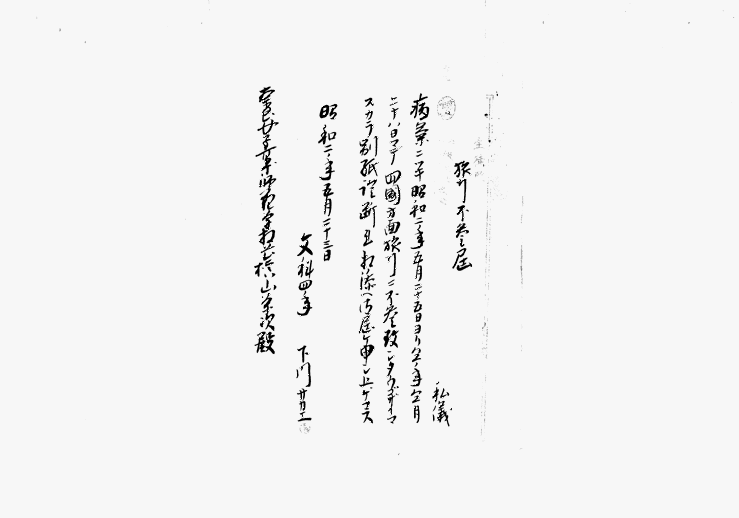 旅行不参届
私儀
病気ニ付昭和二年五月二十五日ヨリ仝年仝月
二十八日マデ四國方面旅行ニ不参致シタク
スカラ別紙診断書相添へ御届ケ申シ上ゲマス
昭和二年五月二十三日
文科四年 下川
奈良女子高等師範学校長槇山栄次殿